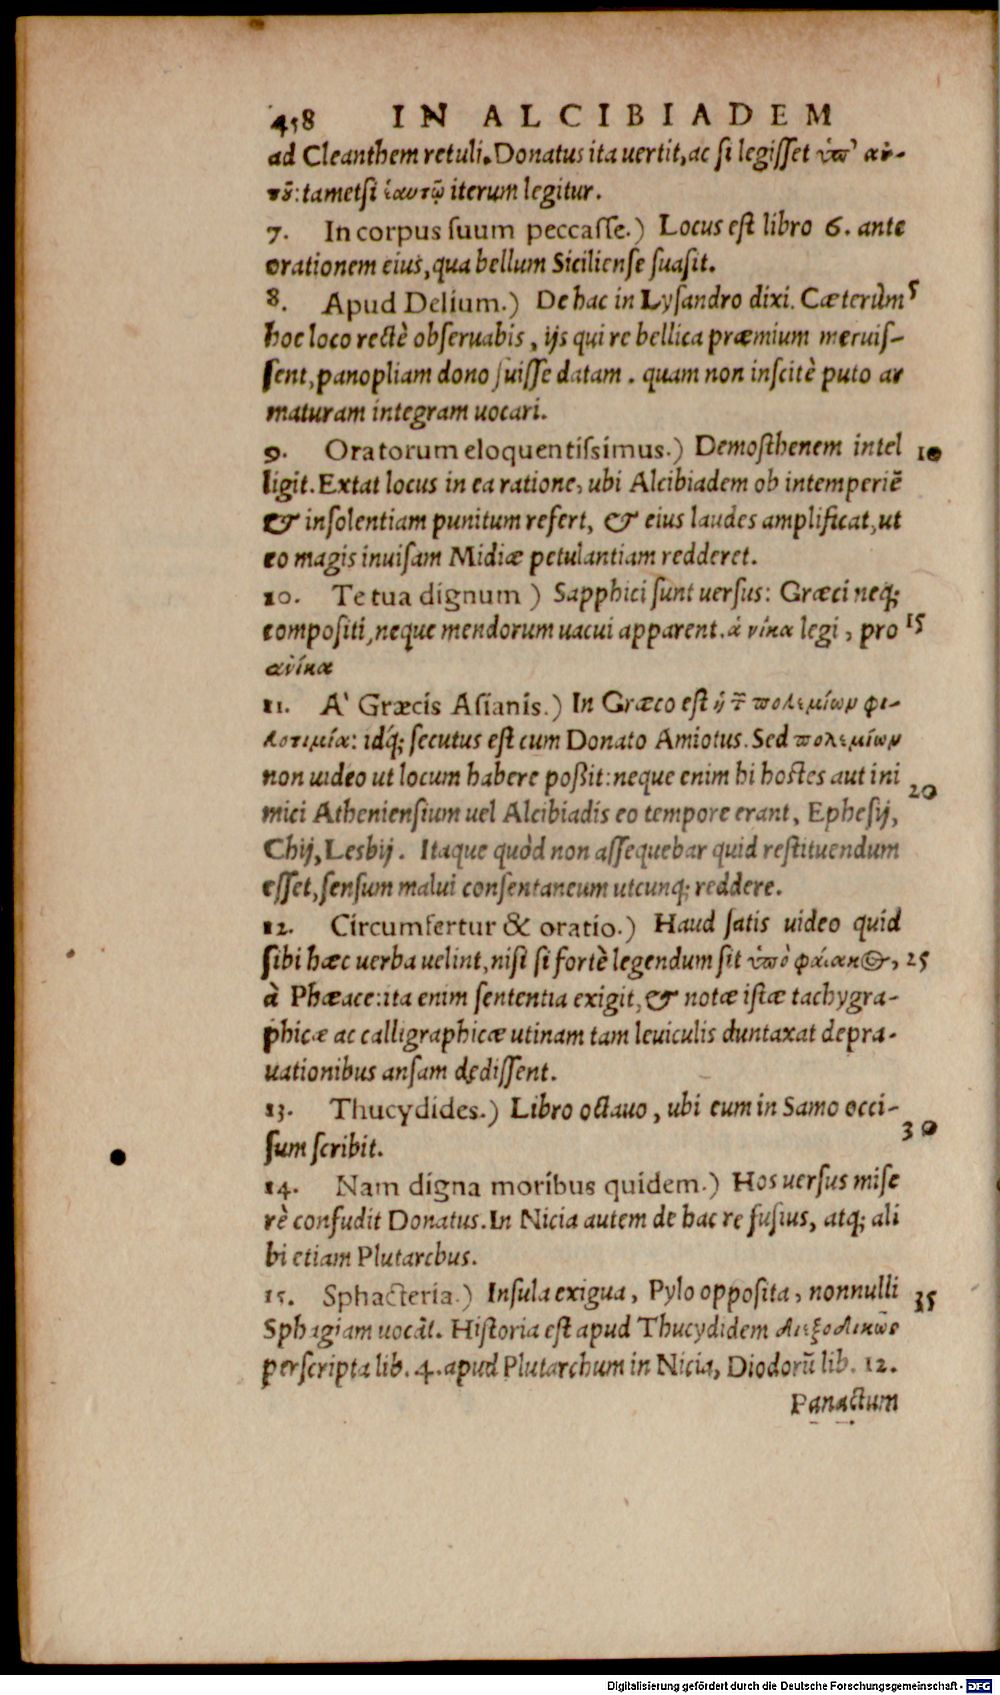 458 IN ALCIBIADEM
ad Cleanthem retuli. Donatus ita uertit, ac si legisset ὑπ' αὐ-
τοῦ: tametsi ἑαυτῷ iterum legitur.
7. In corpus suum peccasse.) Locus est libro 6. ante
orationem eius, qua bellum Siciliense suasit.
8. Apud Delium.) De hac in Lysandro dixi. Cæterùm 5
hoc loco rectè obseruabis, ijs qui re bellica præmium meruis-
sent, panopliam dono fuisse datam. quam non inscitè puto ar
maturam integram uocari.
9. Oratorum eloquentissimus.) Demosthenem intel 10
ligit. Extat locus in ea ratione, ubi Alcibiadem ob intemperiē
& insolentiam punitum refert, & eius laudes amplificat, ut
eo magis inuisam Midiæ petulantiam redderet.
10. Te tua dignum ) Sapphici sunt uersus: Græci neq;
compositi, neque mendorum uacui apparent. ἁ νίκα legi, pro 15
ανίκα
11. A' Græcis Asianis.) In Græco est ἡ τ πολεμίων φι-
λοτιμία: idq́; secutus est cum Donato Amiotus. Sed πολεμίων
non uideo ut locum habere poßit: neque enim hi hostes aut ini
mici Atheniensium uel Alcibiadis eo tempore erant, Ephesij, 20
Chij, Lesbij. Itaque quòd non assequebar quid restituendum
esset, sensum malui consentaneum utcunq; reddere.
12. Circumfertur & oratio.) Haud satis uideo quid
sibi hæc uerba uelint, nisi si fortè legendum sit ὑπὸ φαίακος, 25
à Phæace: ita enim sententia exigit, & notæ istæ tachygra-
phicæ ac calligraphicæ utinam tam leuiculis duntaxat depra-
uationibus ansam dedissent.
13. Thucydides.) Libro octauo, ubi eum in Samo occi-
sum scribit. 30
14. Nam digna moribus quidem.) Hos uersus mise
rè confudit Donatus. In Nicia autem de hac re fusius, atq; ali
bi etiam Plutarchus.
15. Sphacteria.) Insula exigua, Pylo opposita, nonnulli 35
Sphagiam uocāt. Historia est apud Thucydidem διεξοδικῶς
perscripta lib. 4. apud Plutarchum in Nicia, Diodorū lib. 12.
Panactum
Digitalisierung gefördert durch die Deutsche Forschungsgemeinschaft - DFG